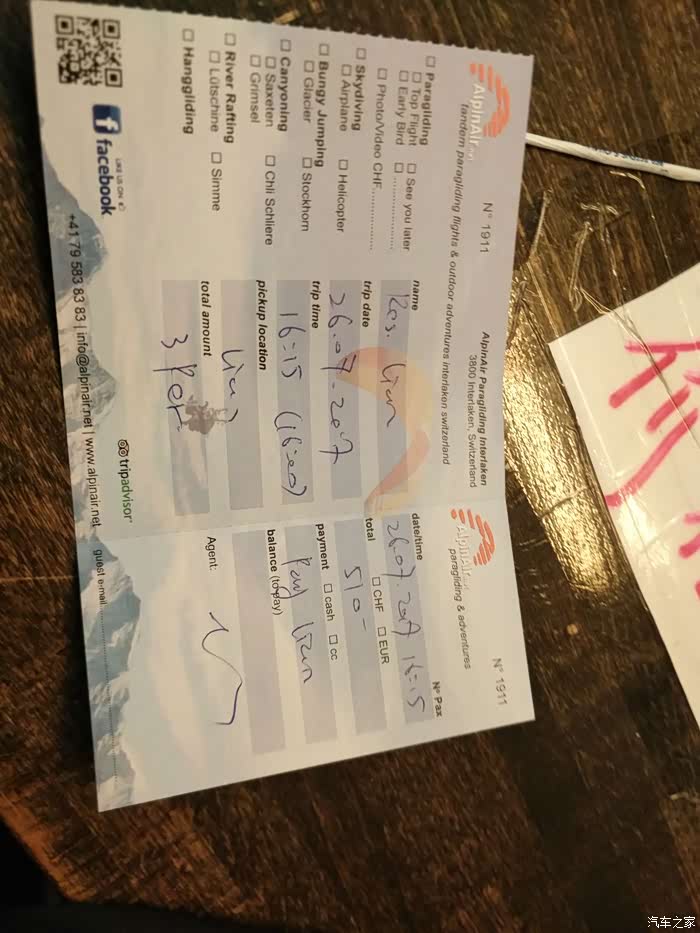 AlpinAir.net
tandem paragliding flights & outdoor adventures interlaken switzerland
N° 1911
AlpinAir Paragliding Interlaken
3800 Interlaken, Switzerland
☐ Paragliding
☐ Top Flight ☐ See you later
☐ Early Bird ☐ ....................
☐ Photo/Video CHF....................
☐ Skydiving
☐ Airplane ☐ Helicopter
☐ Bungy Jumping
☐ Glacier ☐ Stockhorn
☐ Canyoning
☐ Saxeten ☐ Chli Schliere
☐ Grimsel
☐ River Rafting
☐ Lütschine ☐ Simme
☐ Hanggliding
name
Res. Lian
trip date
26.07.2017
trip time
16:15 (16:00)
pickup location
total amount
3 Per
LIKE US ON
facebook
tripadvisor
+41 79 583 83 83 | info@alpinair.net | www.alpinair.net
AlpinAir.net
paragliding & adventures
N° 1911
date/time
N° Pax
26.07.2017 16:15
total ☐ CHF ☐ EUR
510-
payment ☐ cash ☐ cc
Lian
balance (to pay)
Agent:
guest e-mail....................
汽车之家